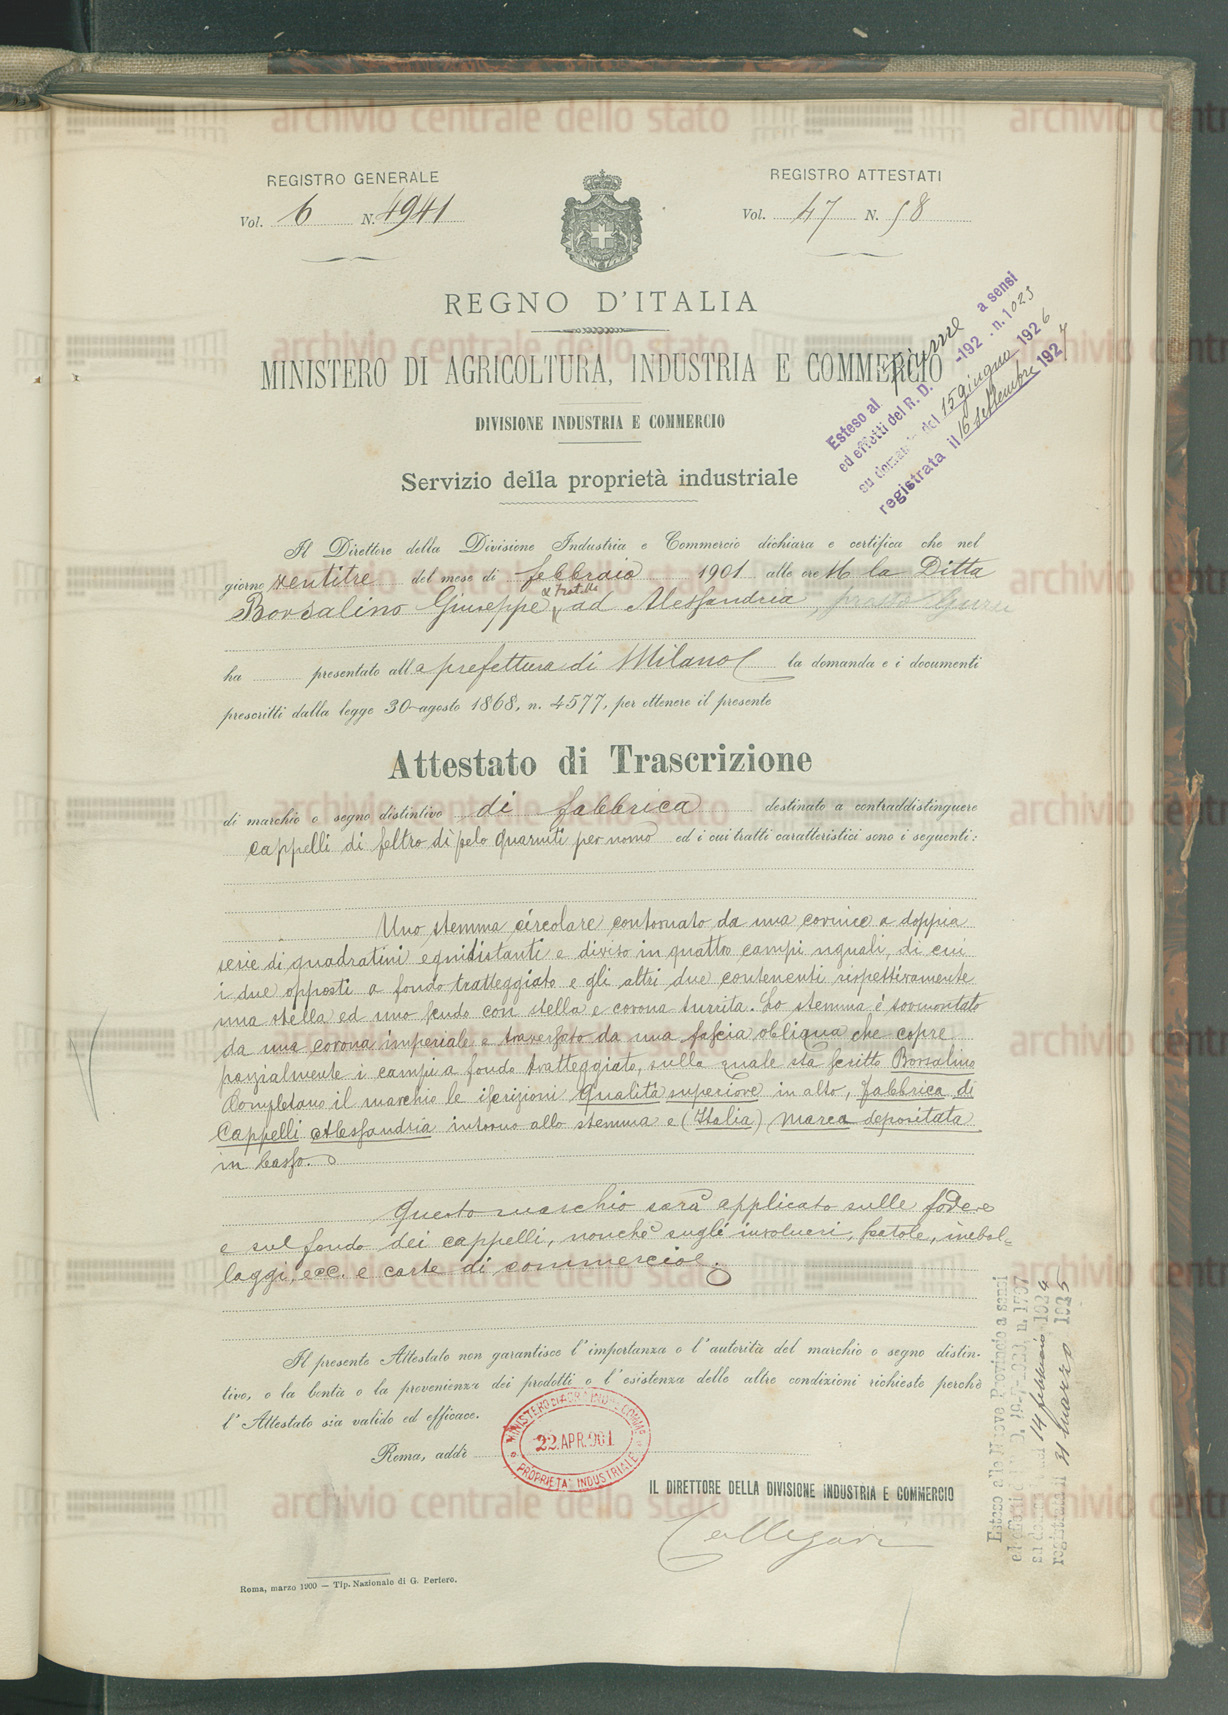 REGISTRO GENERALE
Vol. 6 N. 4941
REGISTRO ATTESTATI
Vol. 47 N. 58
REGNO D'ITALIA
MINISTERO DI AGRICOLTURA, INDUSTRIA E COMMERCIO
DIVISIONE INDUSTRIA E COMMERCIO
Servizio della proprietà industriale
Esteso al Fiume a sensi
ed effetti del R. D. -192 . n. 1023
su domanda del 15 giugno 1926
registrata il 16 settembre 1927
Il Direttore della Divisione Industria e Commercio dichiara e certifica che nel
giorno ventitre del mese di febbraio 1901 alle ore 14 la Ditta
Borsalino Giuseppe & Fratello ad Alessandria, presso
ha presentato alla prefettura di Milano la domanda e i documenti
prescritti dalla legge 30 agosto 1868, n. 4577, per ottenere il presente
Attestato di Trascrizione
di marchio o segno distintivo di fabbrica destinato a contraddistinguere
cappelli di feltro di pelo guarniti per uomo ed i cui tratti caratteristici sono i seguenti:
Uno stemma circolare contornato da una cornice a doppia
serie di quadratini equidistanti e diviso in quattro campi uguali, di cui
i due opposti a fondo tratteggiato e gli altri due contenenti rispettivamente
una stella ed uno scudo con stella e corona turrita. Lo stemma è sormontato
da una corona imperiale e traversato da una fascia obliqua che copre
parzialmente i campi a fondo tratteggiato, sulla quale sta scritto Borsalino
Completano il marchio le iscrizioni Qualità superiore in alto, fabbrica di
Cappelli Alessandria intorno allo stemma e (Italia) Marca depositata
in basso.
Questo marchio sarà applicato sulle fodere
e sul fondo dei cappelli, nonché sugli involucri, scatole, imbal-
laggi, ecc. e carte di commercio.
Il presente Attestato non garantisce l'importanza o l'autorità del marchio o segno distin-
tivo, o la bontà o la provenienza dei prodotti o l'esistenza delle altre condizioni richieste perchè
l'Attestato sia valido ed efficace.
Roma, addì
MINISTERO DI AGR. IND. E COMM.
22.APR.901
PROPRIETA' INDUSTRIALE
IL DIRETTORE DELLA DIVISIONE INDUSTRIA E COMMERCIO
Callegari
Esteso alle Nuove Provincie a sensi
n. 1707
14 febbraio 1924
registrata il 31 marzo 1925
Roma, marzo 1900 — Tip. Nazionale di G. Bertero.
archivio centrale dello stato